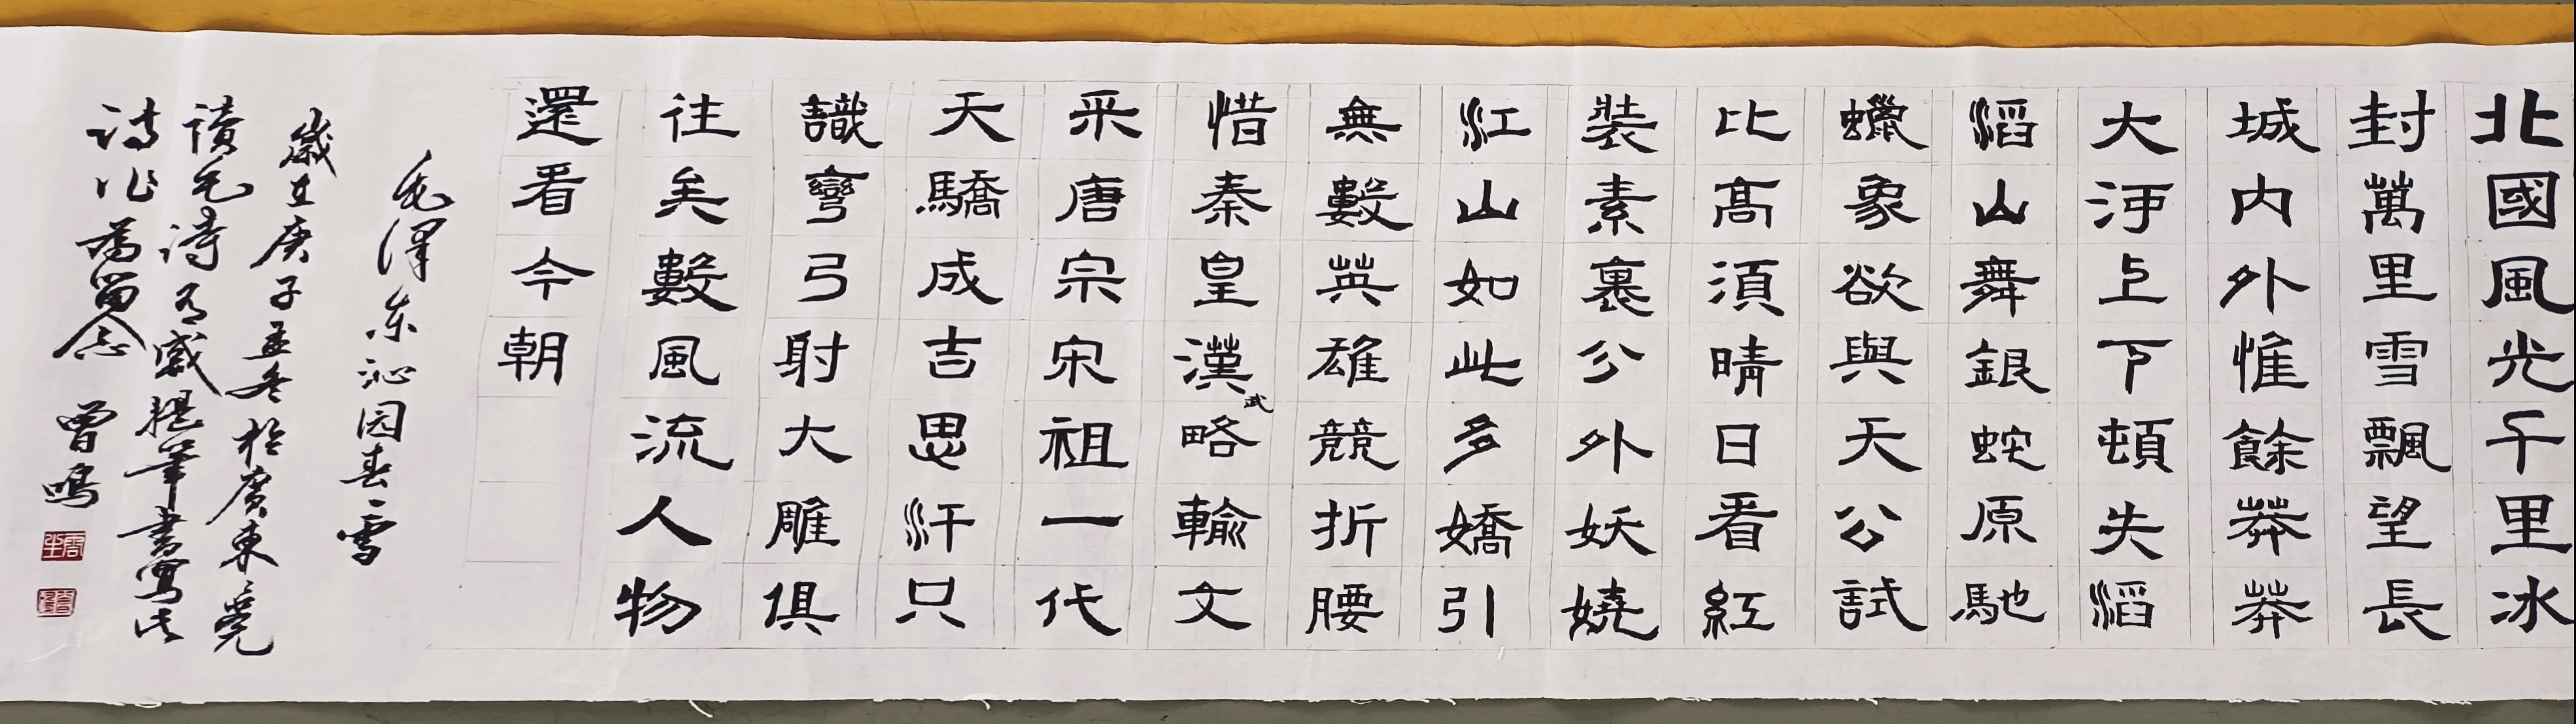 北國風光千里冰
封萬里雪飄望長
城内外惟餘莽莽
大河上下頓失滔
滔山舞銀蛇原馳
蠟象欲與天公試
比高須晴日看紅
裝素裹分外妖嬈
江山如此多嬌引
無數英雄競折腰
惜秦皇漢武略輸文
采唐宗宋祖一代
天驕成吉思汗只
識彎弓射大雕俱
往矣數風流人物
還看今朝
毛澤东沁园春雪
歲在庚子孟冬於廣東莞
讀毛詩有感提筆書寫此
詩作為留念 曾鳴